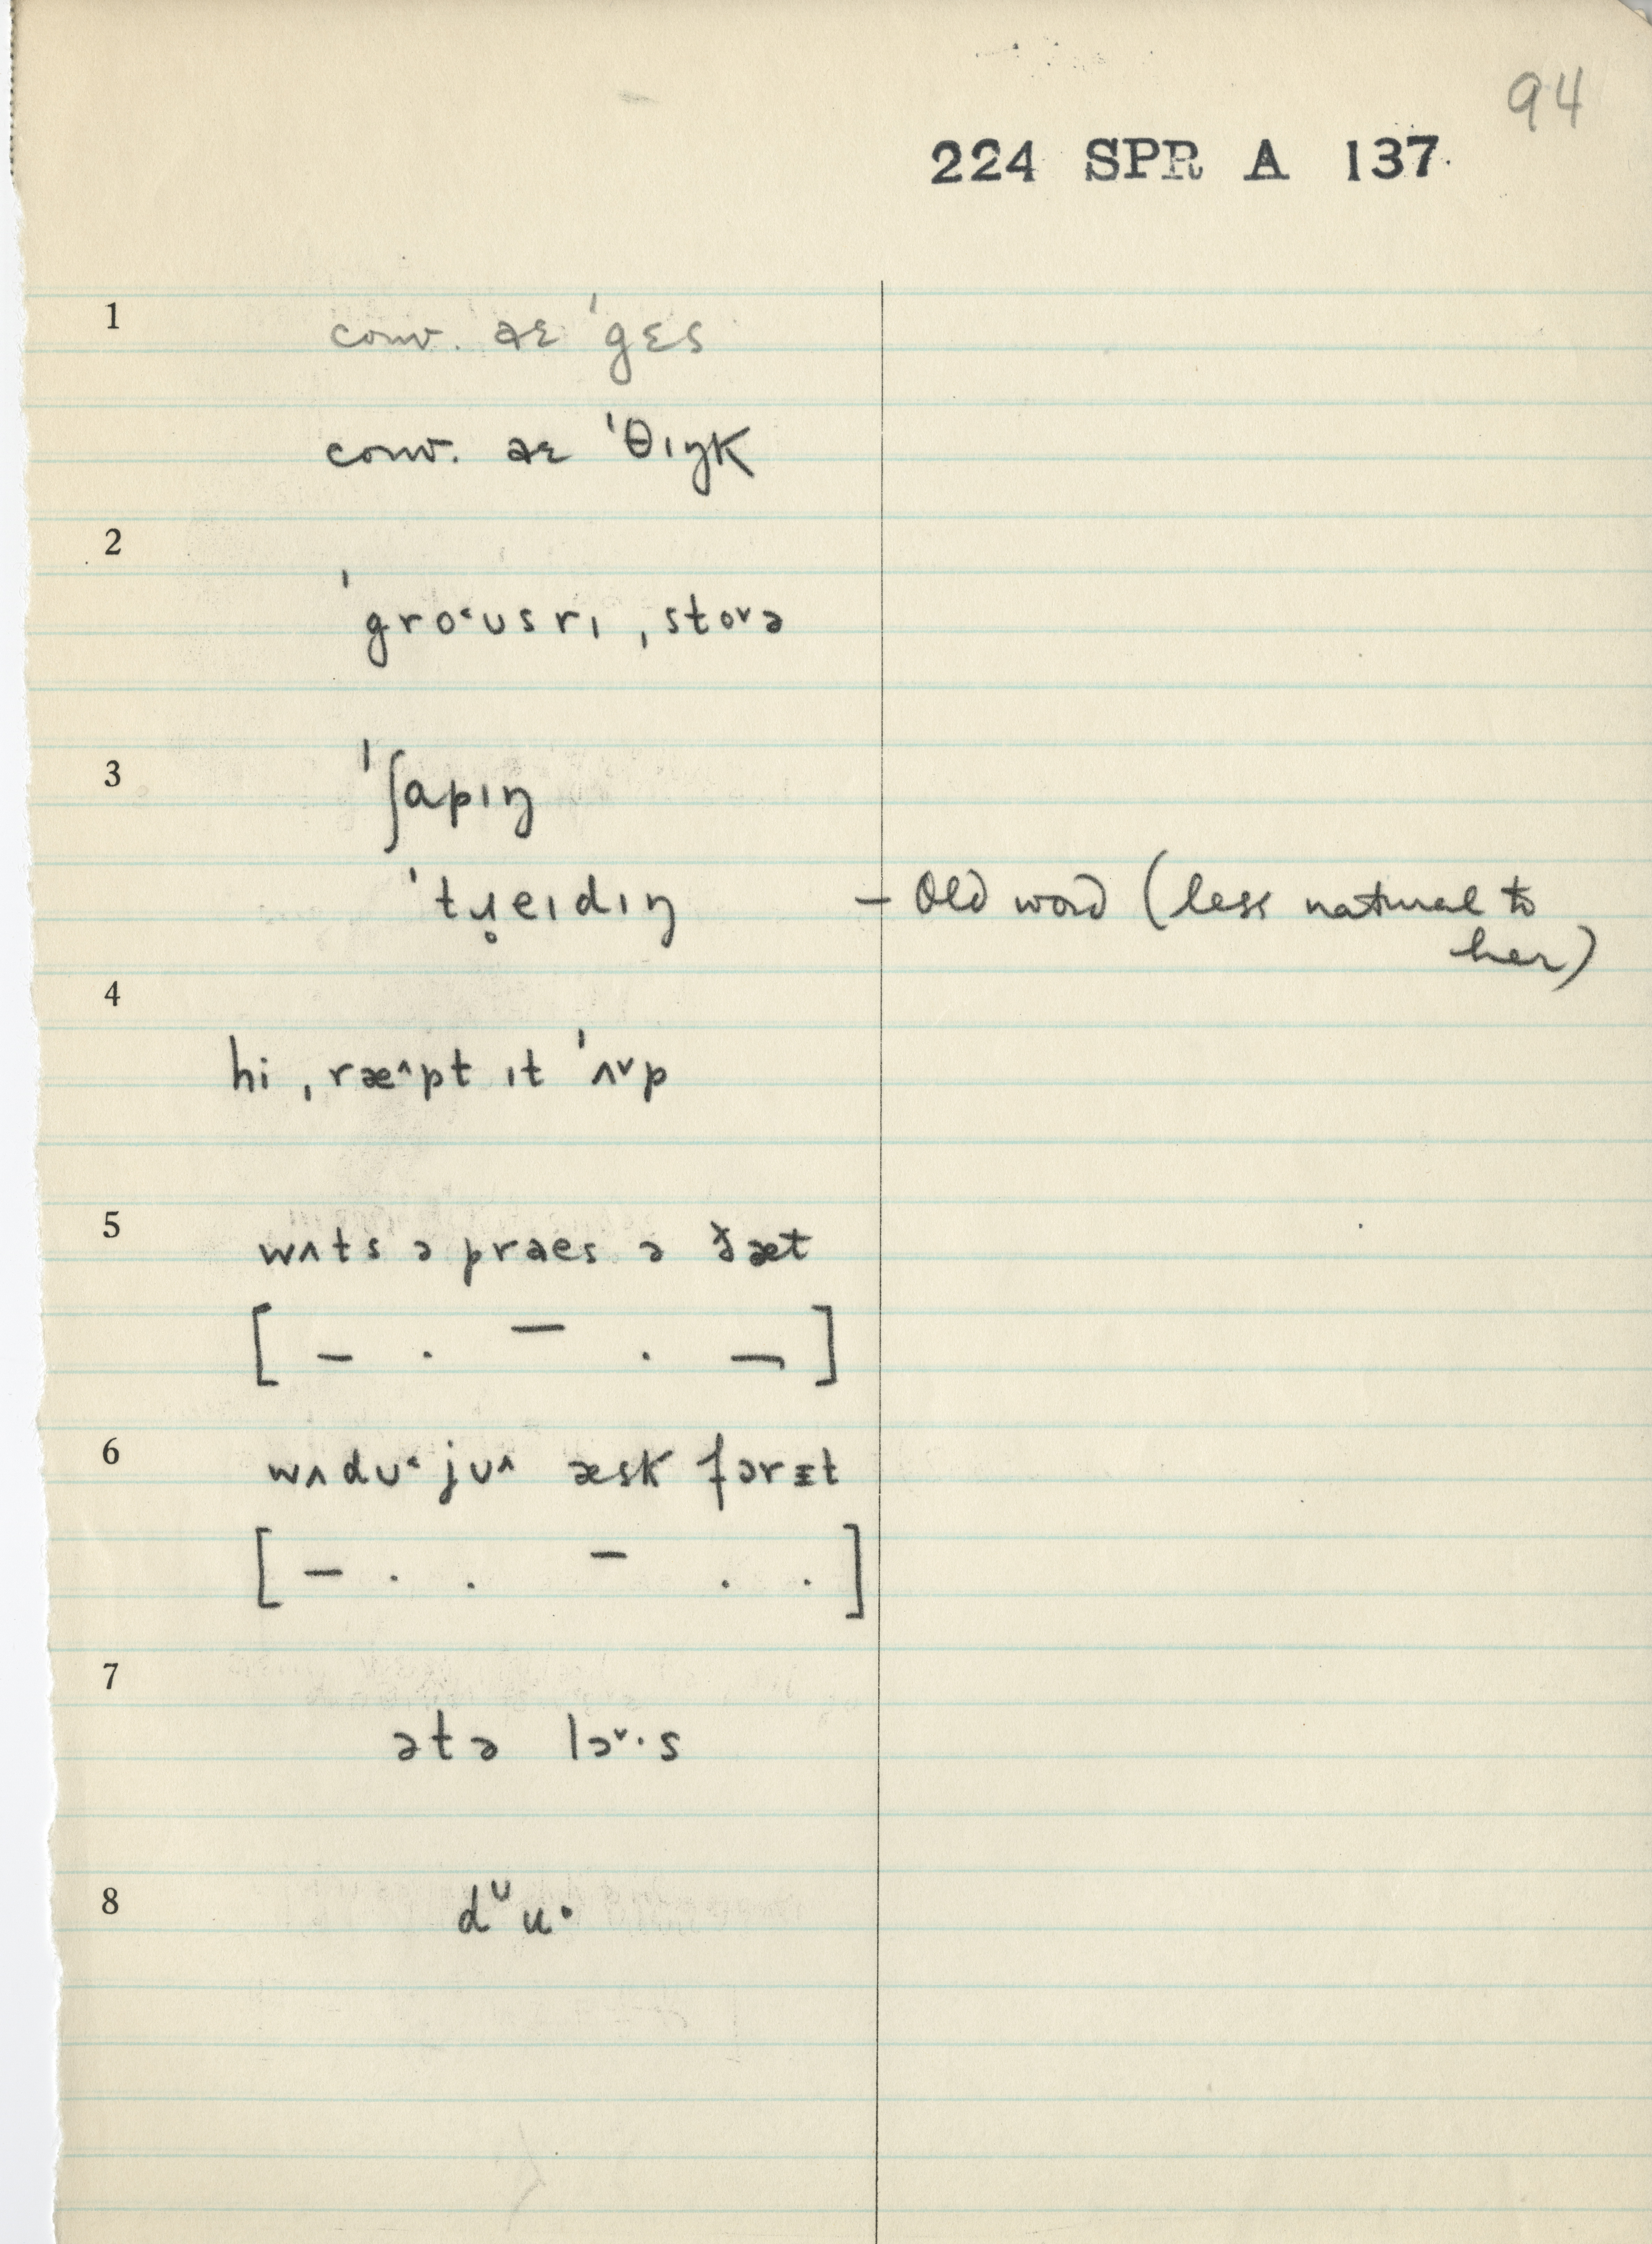 94
224 SPR A 137
1 conv. aɛ ˈgɛs
conv. aɛ ˈθɪŋk
2
ˈgro˂ʊsrɪ ˌsto˅ə
3 ˈʃapɪŋ
ˈtɹ̥eɪdɪŋ – Old word (less natural to
her)
4
hi ˌræ˄pt ɪt ˈʌ˅p
5 wʌts ə praes ə ðæt
[ – . – . – ]
6 wʌdʊ˂ jʊ˄ æsk fərɪt
[ – . . – . . ]
7
ətə lɔ˅·s
8 dᶸu·